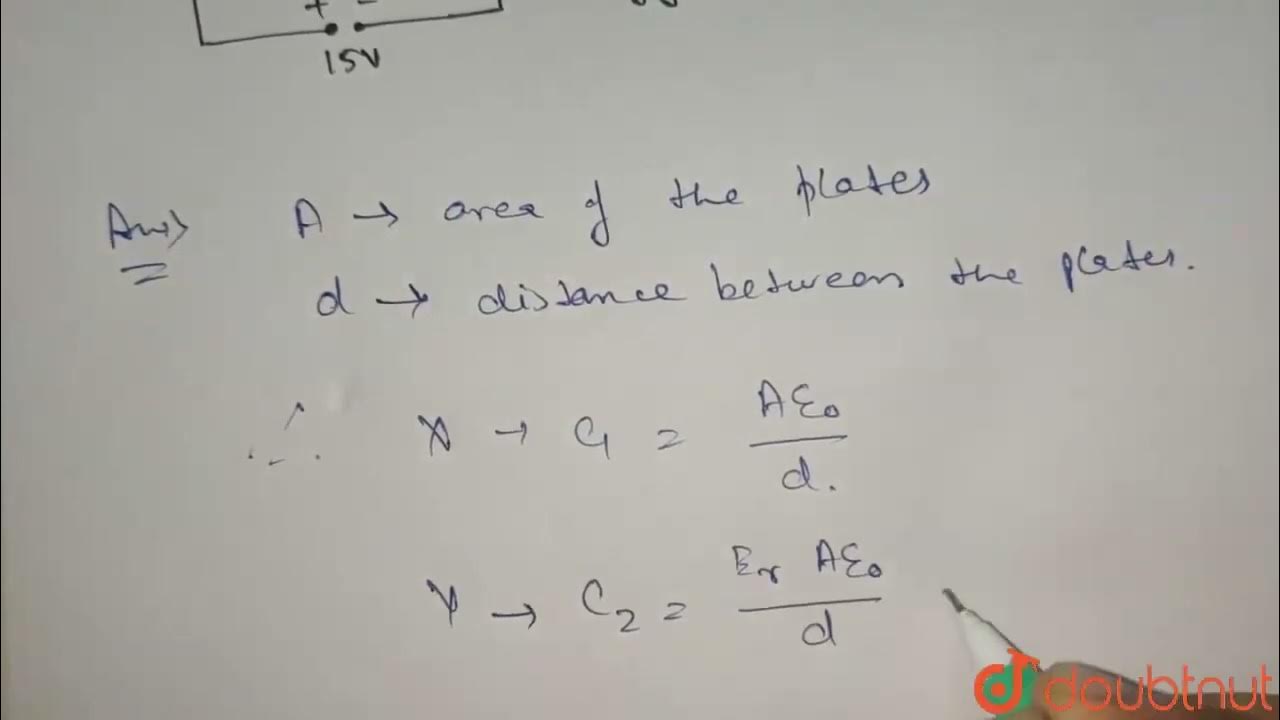 + -
15V
Ans> A → area of the plates
d → distance between the plates.
∴ X → C1 = Aε0/d.
Y → C2 = Er Aε0/d
doubtnut